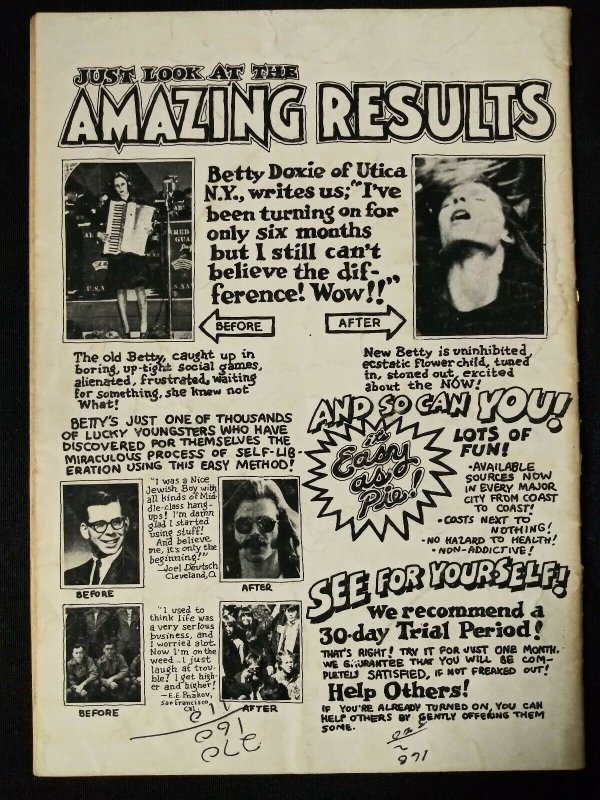 JUST LOOK AT THE
AMAZING RESULTS
Betty Doxie of Utica
N.Y., writes us; "I've
been turning on for
only six months
but I still can't
believe the dif-
ference! Wow!!"
BEFORE
AFTER
The old Betty, caught up in
boring, up-tight social games,
alienated, frustrated, waiting
for something, she knew not
What!
New Betty is uninhibited,
ecstatic flower child, tuned
in, stoned out, excited
about the NOW!
BETTY'S JUST ONE OF THOUSANDS
OF LUCKY YOUNGSTERS WHO HAVE
DISCOVERED FOR THEMSELVES THE
MIRACULOUS PROCESS OF SELF-LIB-
ERATION USING THIS EASY METHOD!
"I was a Nice
Jewish Boy with
all kinds of Mid-
dle-class hang-
ups! I'm damn
glad I started
using stuff!
And believe
me, it's only the
beginning!"
—Joel Deutsch
Cleveland, O.
BEFORE
AFTER
"I used to
think life was
a very serious
business, and
I worried alot.
Now I'm on the
weed...I just
laugh at trou-
ble! I get high-
er and higher!
—E.E. Prakov,
San Francisco,
Cal.
BEFORE
AFTER
AND SO CAN YOU!
it's
Easy
as
Pie!
LOTS OF
FUN!
•AVAILABLE
SOURCES NOW
IN EVERY MAJOR
CITY FROM COAST
TO COAST!
•COSTS NEXT TO
NOTHING!
•NO HAZARD TO HEALTH!
•NON-ADDICTIVE!
SEE FOR YOURSELF!
We recommend a
30-day Trial Period!
THAT'S RIGHT! TRY IT FOR JUST ONE MONTH.
WE GUARANTEE THAT YOU WILL BE COM-
PLETELY SATISFIED, IF NOT FREAKED OUT!
Help Others!
IF YOU'RE ALREADY TURNED ON, YOU CAN
HELP OTHERS BY GENTLY OFFERING THEM
SOME.